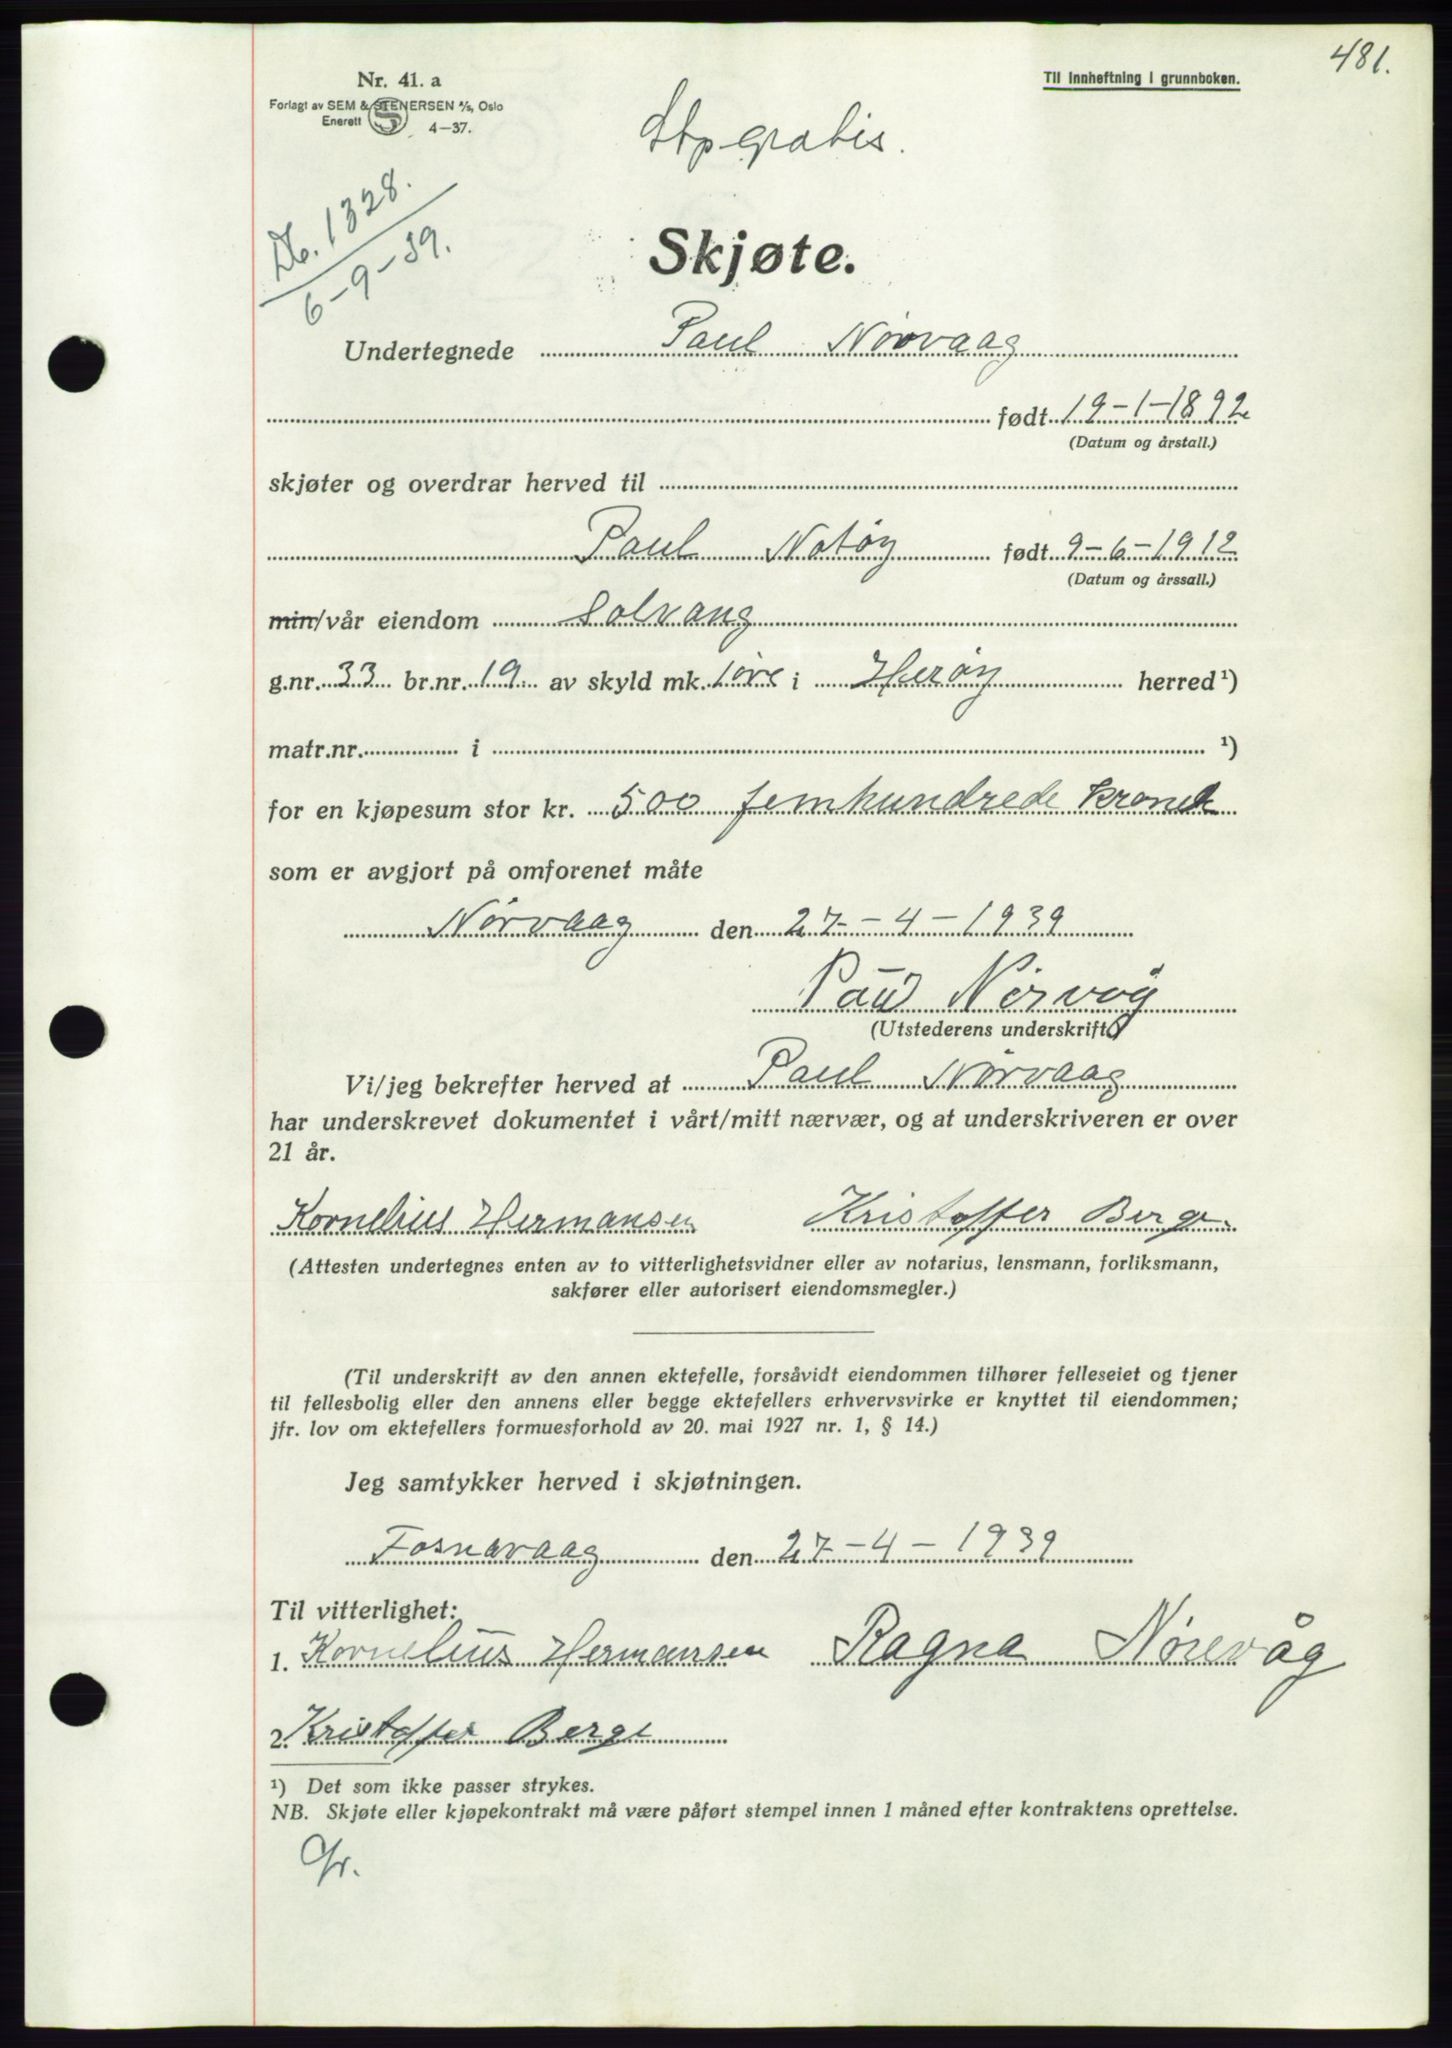 481.
Nr. 41. a
Til innheftning i grunnboken.
Forlagt av SEM & STENERSEN A/S, Oslo
Enerett S 4—37.
Stpgratis.
Db. 1328.
6-9-39.
Skjøte.
Undertegnede Paul Nörvaag
født 19-1-1892
(Datum og årstall.)
skjøter og overdrar herved til
Paul Notöy født 9-6-1912
(Datum og årssall.)
min/vår eiendom Solvang
g.nr. 33 br.nr. 19 av skyld mk. 1 øre i Heröy herred ¹)
matr.nr. i ¹)
for en kjøpesum stor kr. 500 femhundrede kroner
som er avgjort på omforenet måte
Nörvaag den 27-4-1939
Paul Nörvåg
(Utstederens underskrift.)
Vi/jeg bekrefter herved at Paul Nörvaag
har underskrevet dokumentet i vårt/mitt nærvær, og at underskriveren er over
21 år.
Kornelius Hermansen Kristoffer Berge.
(Attesten undertegnes enten av to vitterlighetsvidner eller av notarius, lensmann, forliksmann,
sakfører eller autorisert eiendomsmegler.)
(Til underskrift av den annen ektefelle, forsåvidt eiendommen tilhører felleseiet og tjener
til fellesbolig eller den annens eller begge ektefellers erhvervsvirke er knyttet til eiendommen;
jfr. lov om ektefellers formuesforhold av 20. mai 1927 nr. 1, § 14.)
Jeg samtykker herved i skjøtningen.
Fosnavaag den 27-4-1939
Til vitterlighet:
1. Kornelius Hermansen Ragna Nörevåg
2. Kristoffer Berge
¹) Det som ikke passer strykes.
NB. Skjøte eller kjøpekontrakt må være påført stempel innen 1 måned efter kontraktens oprettelse.